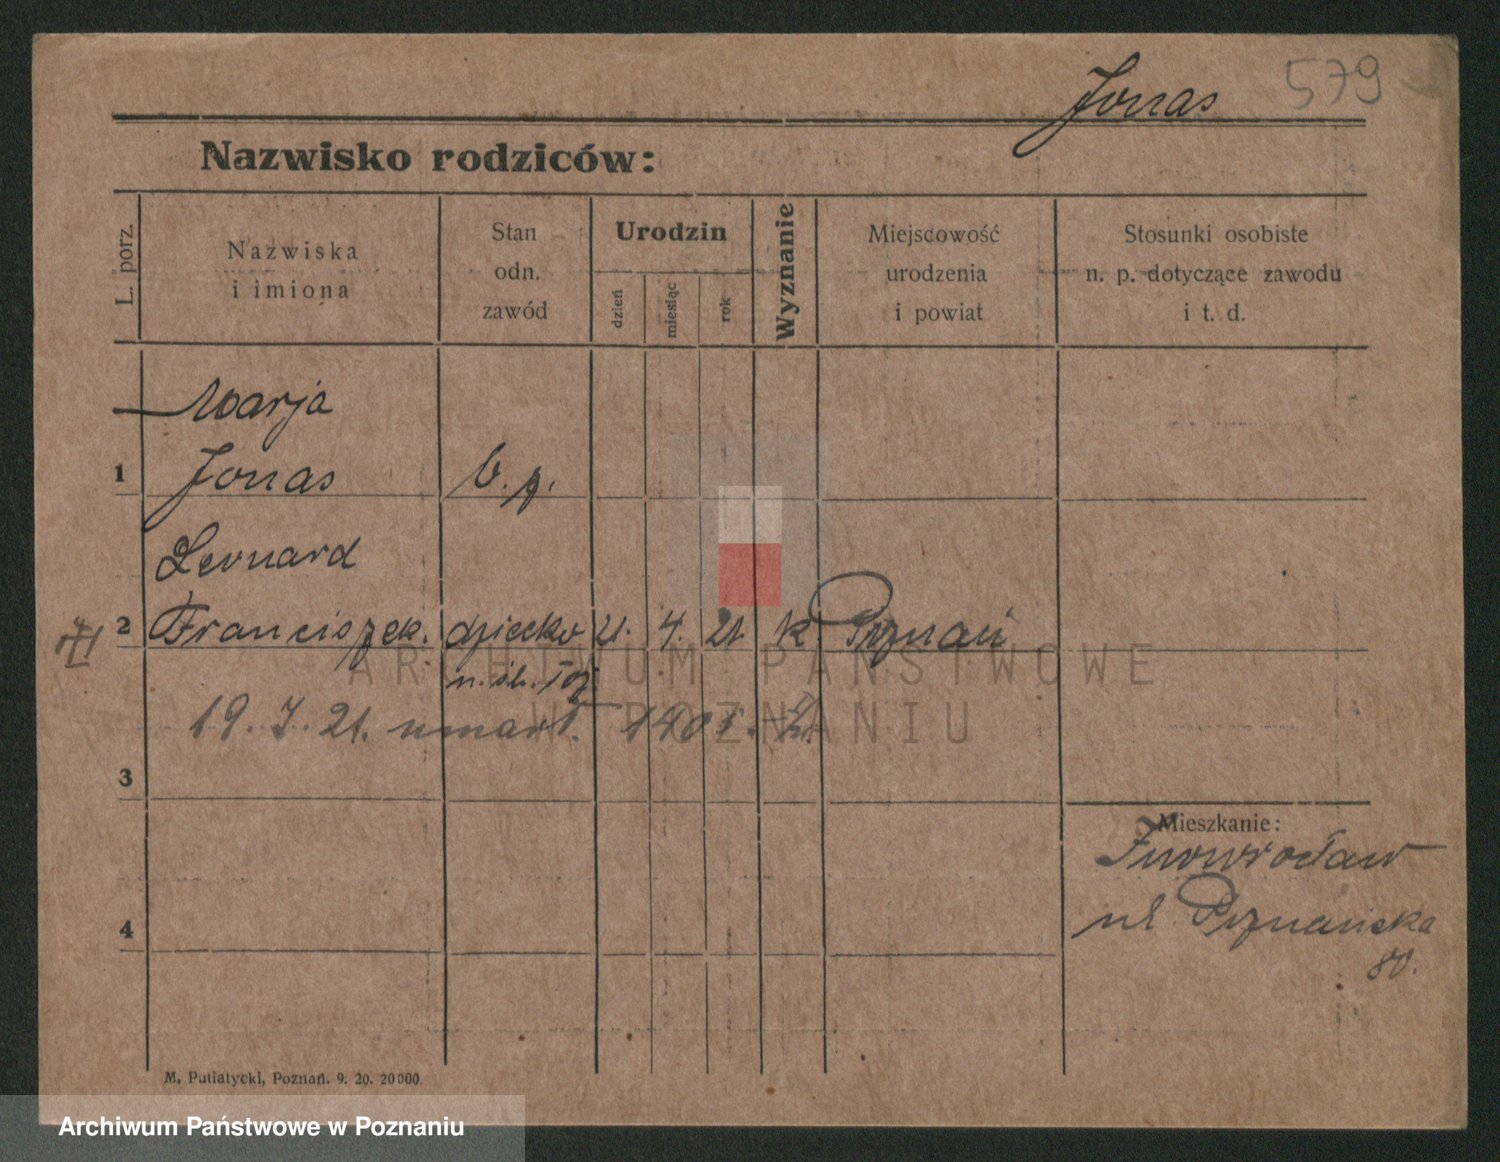 Jonas 579
Nazwisko rodziców:
L. porz.
Nazwiska
i imiona
Stan
odn.
zawód
Urodzin
dzień
miesiąc
rok
Wyznanie
Miejscowość
urodzenia
i powiat
Stosunki osobiste
n. p. dotyczące zawodu
i t. d.
Marja
1 Jonas b. p.
Leonard
2 Franciszek. dziecko 21. 4. 21. k Poznań
n. śl.
ARCHIWUM PAŃSTWOWE
W POZNANIU
19. 7. 21. umarł.
3
Mieszkanie:
Inowrocław
ul Poznańska
80.
4
M. Putiatycki, Poznań. 9. 20. 20000.
Archiwum Państwowe w Poznaniu